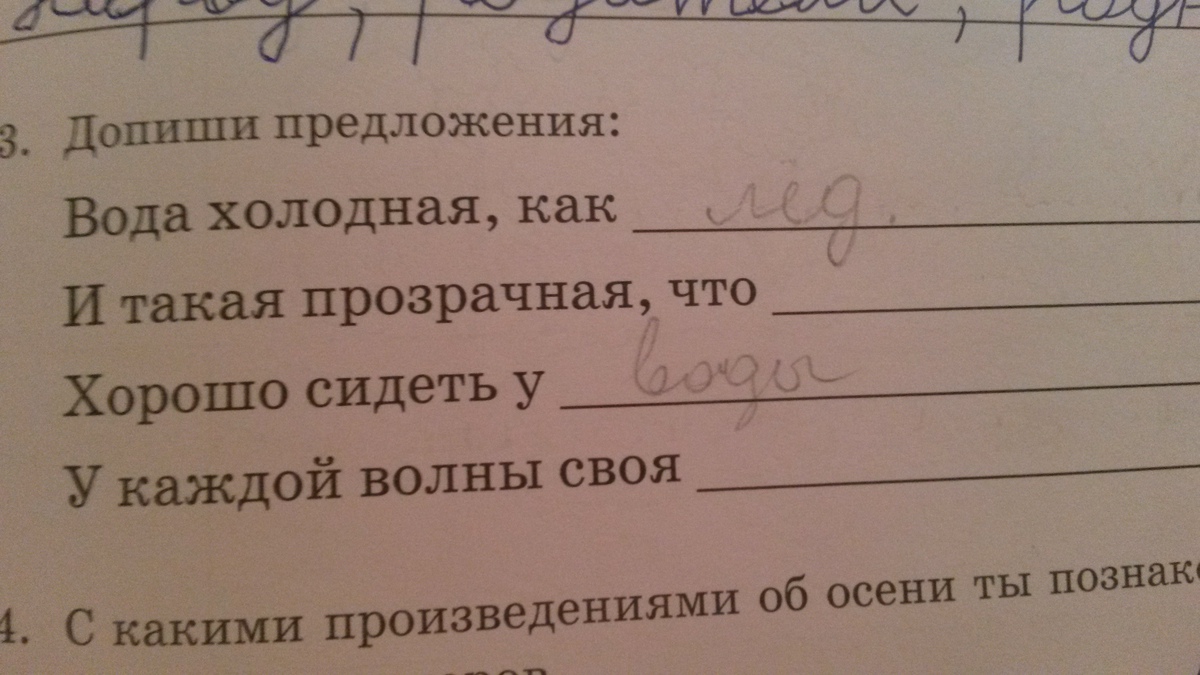 3. Допиши предложения:
Вода холодная, как лёд.
И такая прозрачная, что
Хорошо сидеть у воды
У каждой волны своя
4. С какими произведениями об осени ты